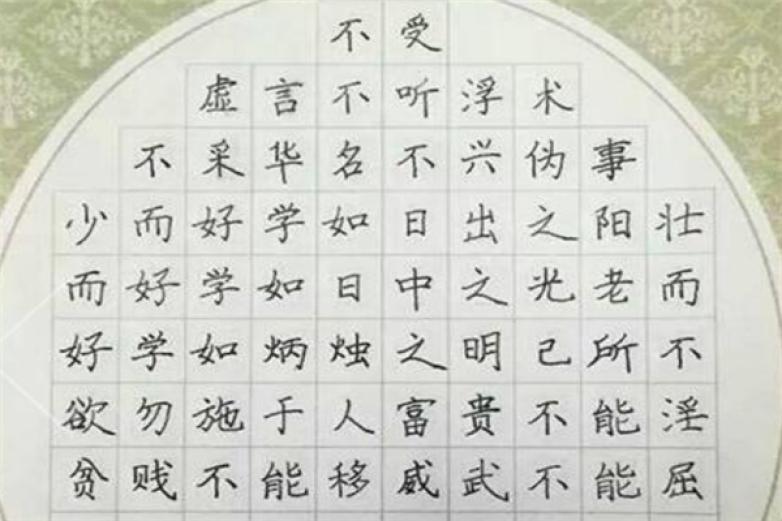 不受
虚言不听浮术
不采华名不兴伪事
少而好学如日出之阳壮
而好学如日中之光老而
好学如炳烛之明己所不
欲勿施于人富贵不能淫
贫贱不能移威武不能屈